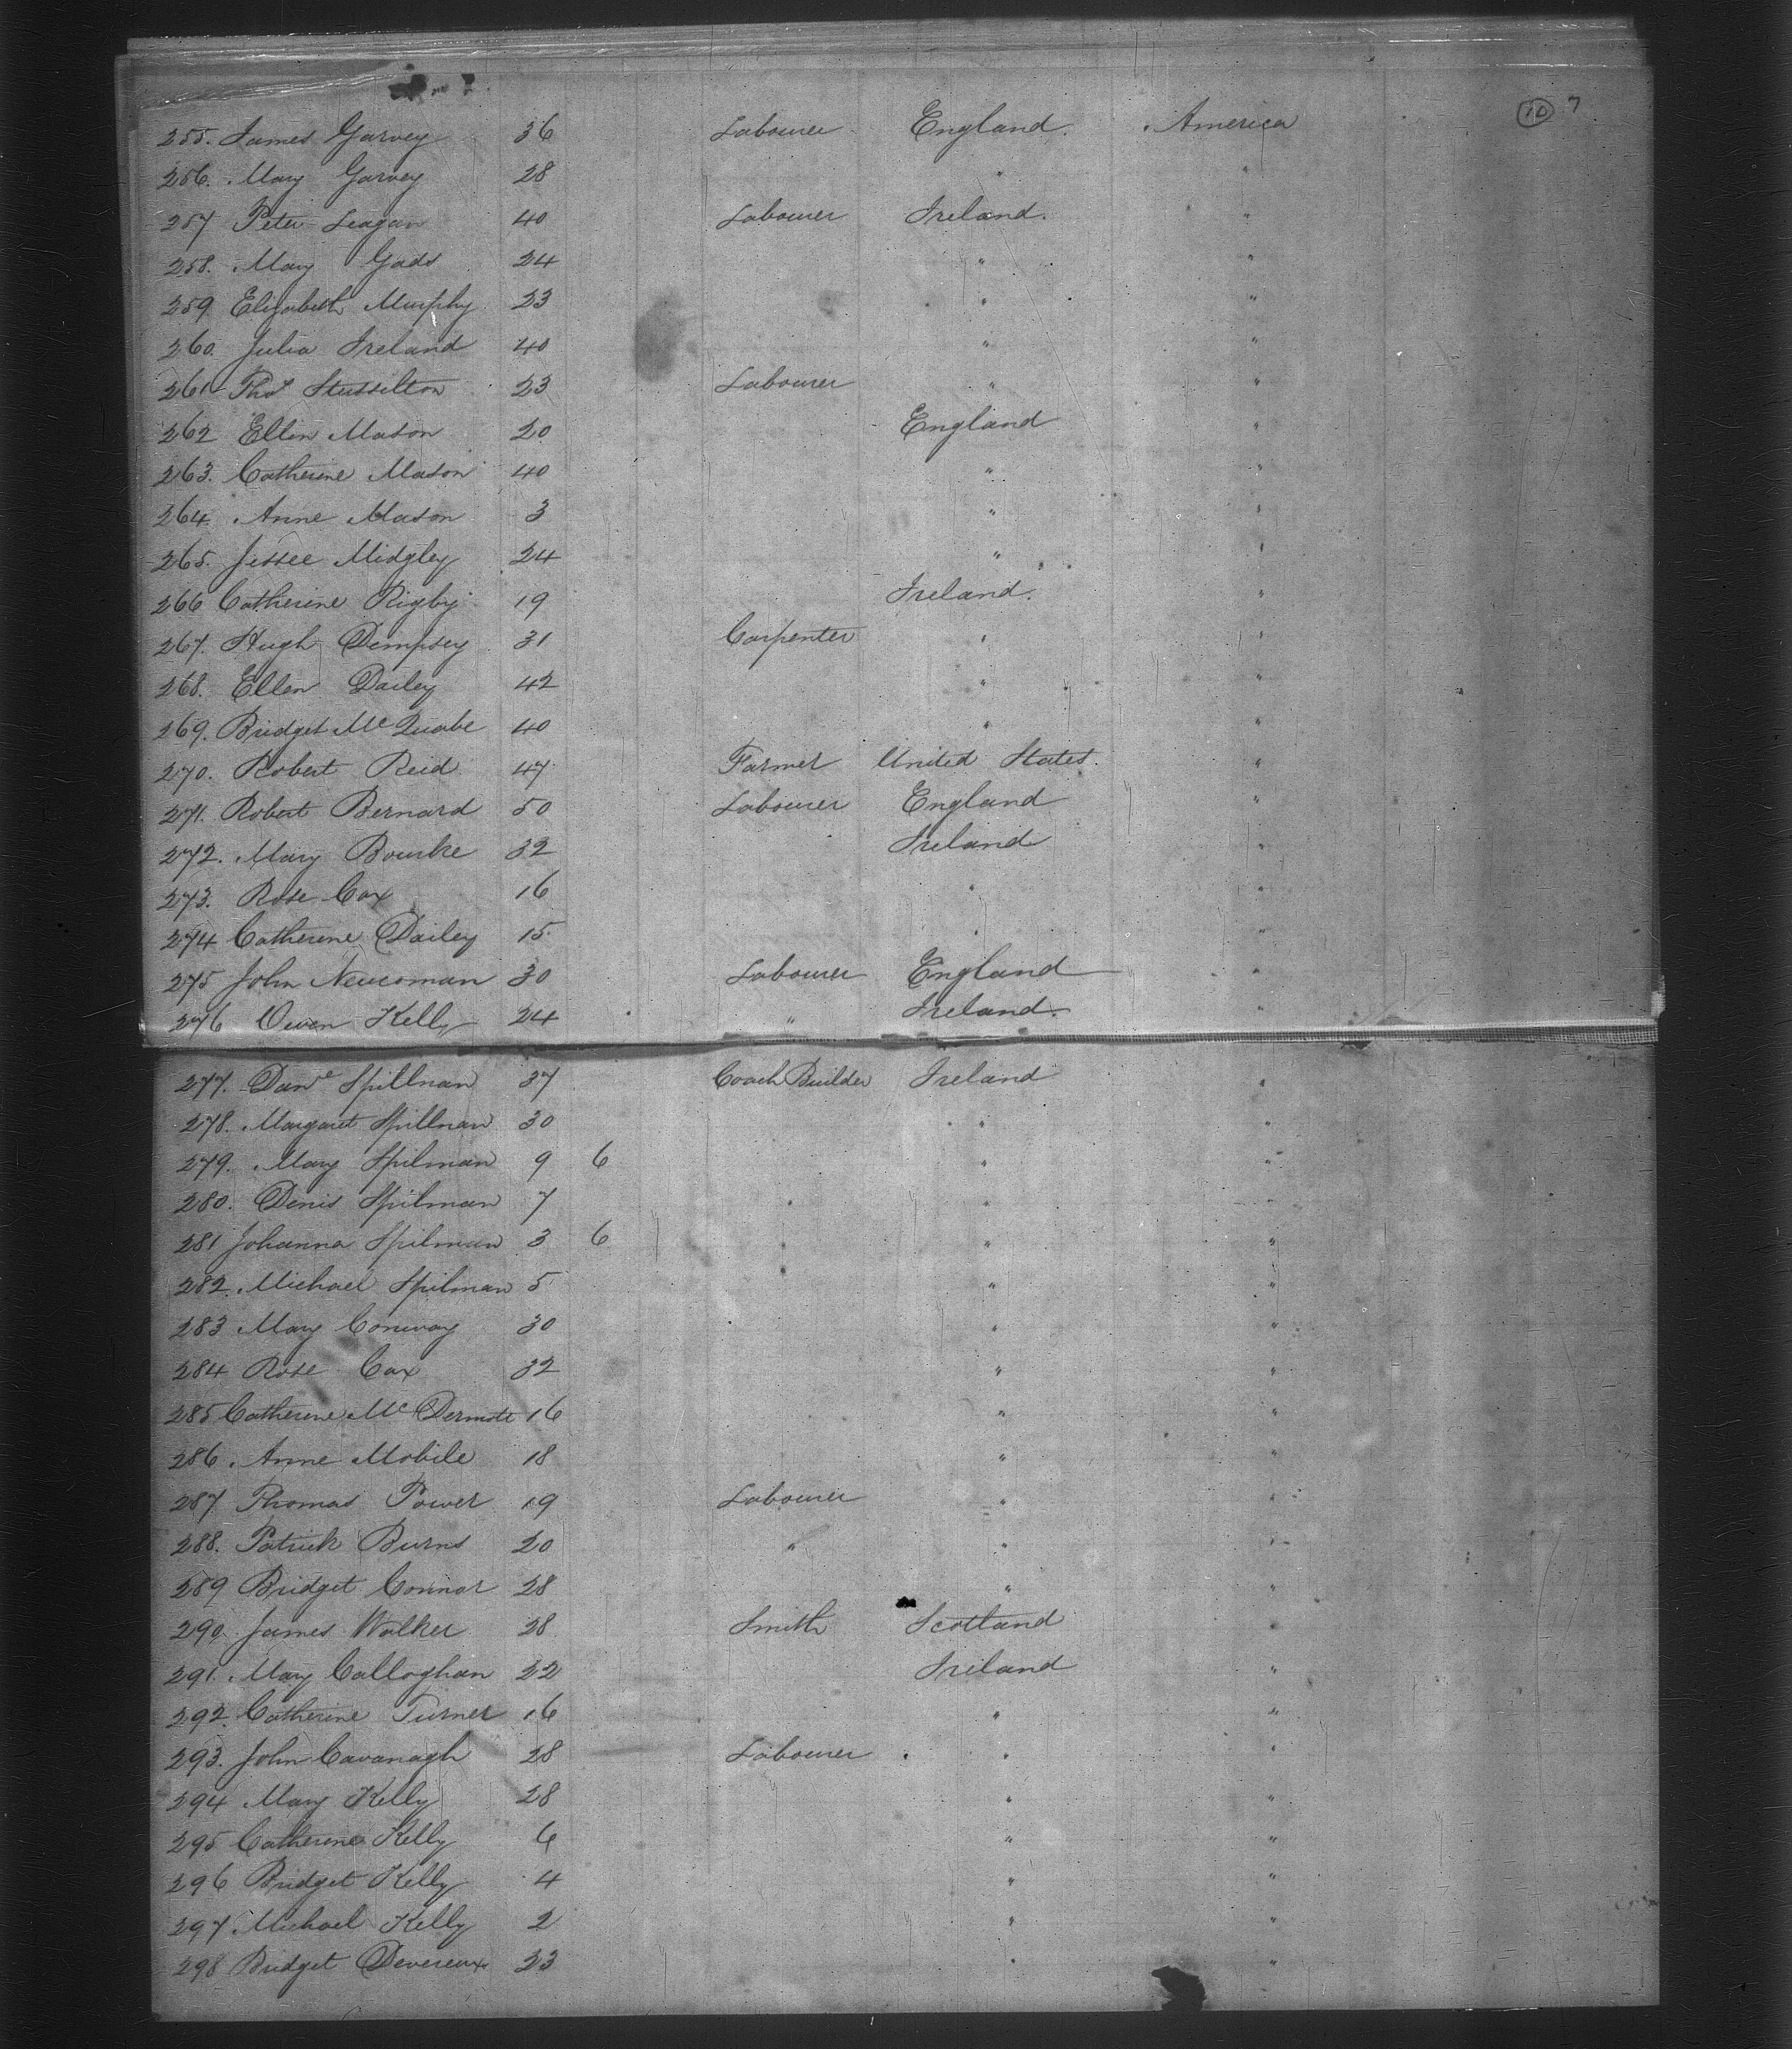 10 7
255. James Garvey 36 Labourer England. America
256. Mary Garvey 28 " "
257 Peter Leagan 40 Labourer Ireland. "
258. Mary Gads 24 " "
259 Elizabeth Murphy 23 " "
260. Julia Ireland 40 " "
261 Thos Stusselton 23 Labourer " "
262 Ellen Mason 20 England "
263. Catherine Mason 40 " "
264 Anne Mason 3 " "
265. Jessee Midgley 24 " "
266 Catherine Rigby 19 Ireland. "
267. Hugh Dempsey 31 Carpenter " "
268. Ellen Dailey 42 " "
269. Bridget McQuabe 40 " "
270. Robert Reid 47 Farmer United States. "
271. Robert Bernard 50 Labourer England "
272. Mary Bourke 32 Ireland "
273. Rose Cox 16 " "
274 Catherine Dailey 15 " "
275 John Newcoman 30 Labourer England "
276 Owen Kelly 24 " Ireland. "
277. Dane Spillnan 37 Coach Builder Ireland "
278. Margaret Spillnan 30 " "
279. Mary Spilman 9 6 " "
280. Denis Spilman 7 " "
281 Johanna Spilman 3 6 " "
282. Michael Spilman 5 " "
283 Mary Conway 30 " "
284 Rose Cox 32 " "
285 Catherine McDermott 16 " "
286. Anne Mobile 18 " "
287 Thomas Power 19 Labourer " "
288. Patrick Burns 20 " " "
289 Bridget Connor 28 " "
290. James Walker 28 Smith Scotland "
291. Mary Calloghan 22 Ireland "
292. Catherine Turner 16 " "
293. John Cavanagh 28 Labourer " "
294 Mary Kelly 28 " "
295 Catherine Kelly 6 " "
296 Bridget Kelly 4 " "
297 Michael Kelly 2 " "
298 Bridget Devereux 23 " "